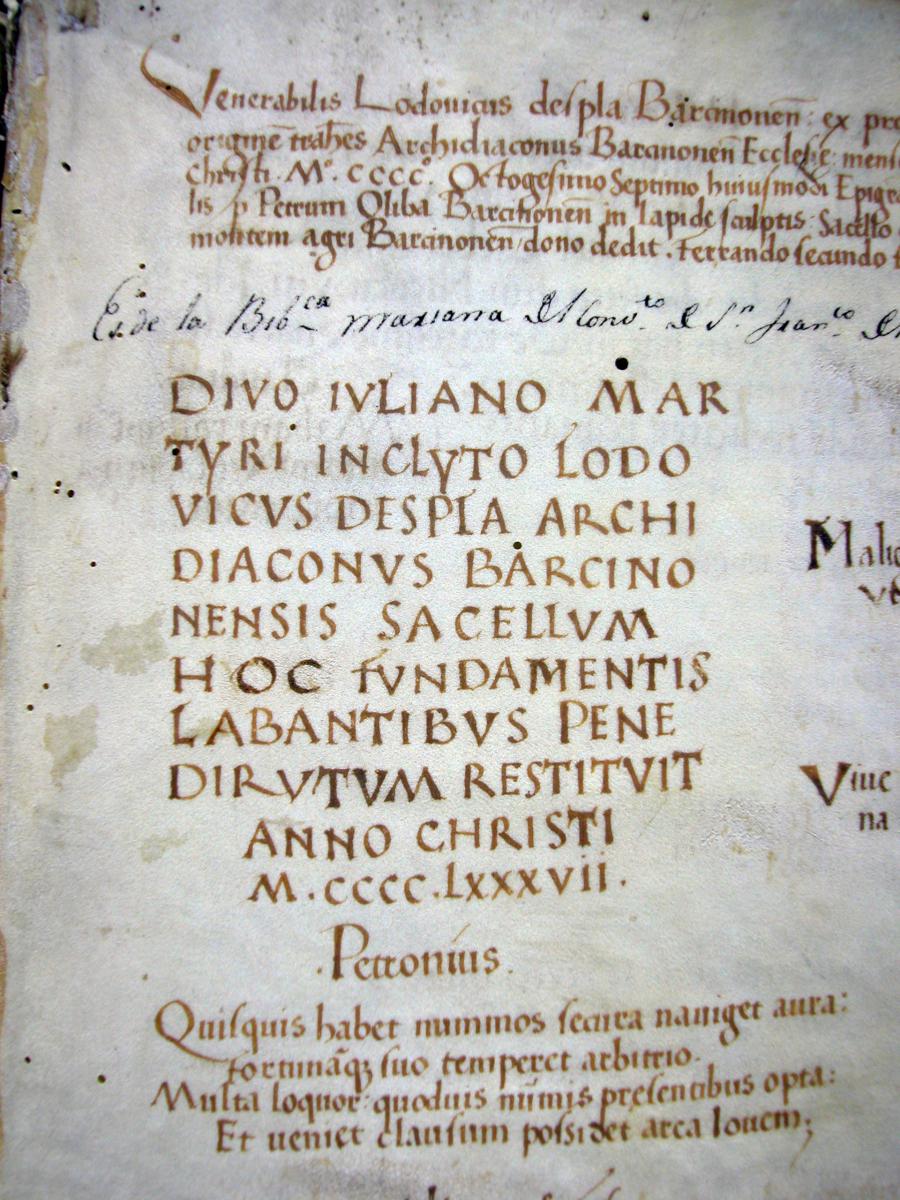 Venerabilis Lodouicus despla Barcinonen̄: ex pro
origine trah̄es Archidiaconus Barcinonen̄ Ecclesie: mens
christi. Mº. ccccº. Octogesimo Septimo huiusmodi Epigra
lis p Petrum Oliba Barcinonen̄ in lapide sculptis: Sacello
montem agri Barcinonen̄ dono dedit. Ferrando secundo
Es de la Bibᶜᵃ mariana del Convᵗᵒ de Sⁿ Franᶜᵒ de
DIVO IVLIANO MAR
TYRI INCLYTO LODO
VICVS DESPLA ARCHI
DIACONVS BARCINO
NENSIS SACELLVM
HOC FVNDAMENTIS
LABANTIBVS PENE
DIRVTVM RESTITVIT
ANNO CHRISTI
M.CCCC.LXXXVII.
Malic
Viue
na
.Petronius.
Quisquis habet nummos secura nauiget aura:
fortunāqȝ suo temperet arbitrio.
Multa loquor: quoduis nūmis presentibus opta:
Et ueniet clausum possidet arca Iouem;